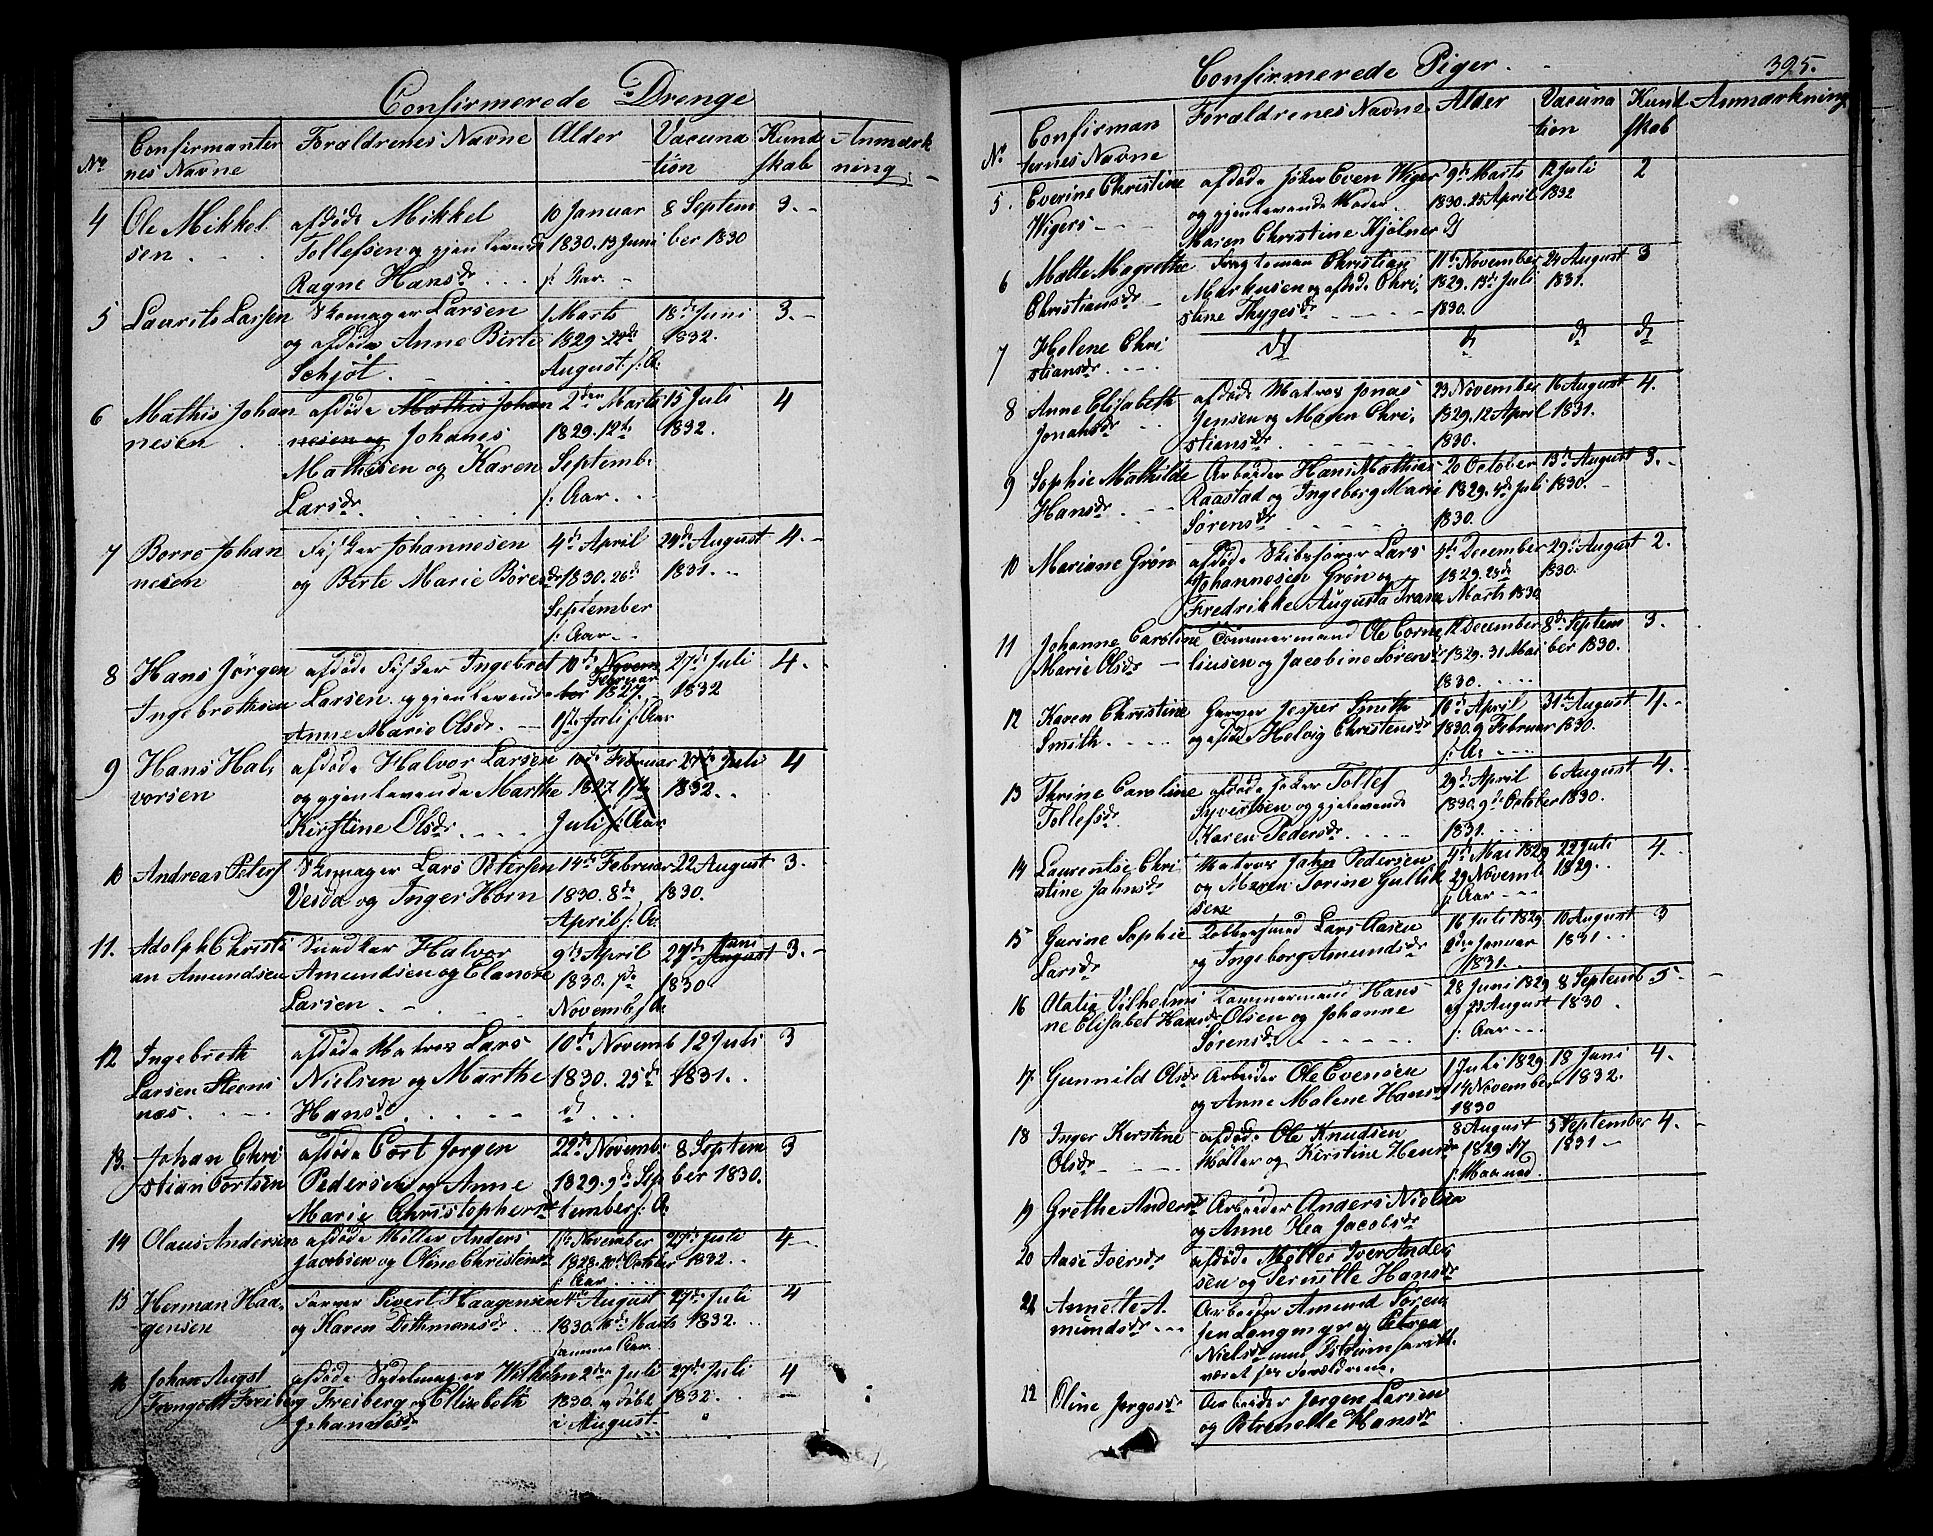 Confirmerede Drenge
No
Confirmanter
nes Navne
Forældrenes Navne
Alder
Vacuna
tion
Kund
skab
Anmærk
ning
4
Ole Mikkel
sen
afdöde Mikkel
Tollefsen og gjenlevende
Ragne Hansdr
10 Januar
1830. 13 Juni
s: Aar
8 Septem
ber 1830
3.
5
Laurits Larsen
Skomager Larsen
og afdöde Anne Birte
Schjöt
1 Marts
1829 22de
August s: A:
18de Juni
1832.
3.
6
Mathis Johan
nesen
afdöde Mathis Johan
nesen og Johanes
Mathesen og Karen
Larsdr
2den Marts
1829. 12te
Septemb:
s: Aar.
15 Juli
1832.
4
7
Borre Johan
nesen
Fisker Johannesen
og Berte Marie Börresdr
4de April
1830. 26de
September
s: Aar
24de August
1831.
4.
8
Hans Jörgen
Ingebrethsen
afdöde Fisker Ingebret
Larsen og gjenlevende
Anne Marie Olsdr
10de Novem
Februar
ber 1827.
1ste Juli s: Aar
27de Juli
1832
4.
9
Hans Hal,
vorsen
afdöde Halvor Larsen
og gjenlevende Marthe
Kirstine Olsdr
10de Februar
1827. 1ste
Juli s: Aar
27de Juli
1832.
4
10
Andreas Peters
Skomager Lars Petersen
Vesda og Inger Horn
14de Februar
1830. 8de
April s: A:
22 August
1830.
3.
11.
Adolph Christi
an Amundsen
Halvor
Amundsen og Elanore
Larsen
9de April
1830. 1ste
Novemb s: A:
27de Juni
August
1830
3.
12
Ingebreth
Larsen Steens
næs.
afdöde Matros Lars
Nielsen og Marthe
Hansdr
10de Novemb
1830. 25de
do
12 Juli
1831.
3
13.
Johan Chri
stian Cortsen
afdöde Cort Jorgen
Pedersen og Anne
Marie Christophersdr
22de Novemb:
1829. 9de Sep
tember s: A:
8 Septem
ber 1830.
3
14
Olaus Andersen
afdöde Möller Anders
Jacobsen og Oline Christensdr
November
October
s: Aar
27de Juli
1832.
4
15
Herman Haa,
gensen
Farver Sivert Haagensen
og Karen Dithmansdr
4de August
1830. Marts
samme Aar
27de Juli
1832.
4
16
Johan Augst
Freiberg
afdöde Sadelmager Wilhelm
Freiberg og Ellisebeth
Johannesdr
2de Juli
1830. og döbt
i August
27de Juli
1832.
4
Confirmerede Piger.
395.
No
Confirman
ternes Navne
Forældrenes Navne
Alder
Vacuna
tion
Kund
skab
Anmærkning
5.
Everine Christine
Wigers
afdöde Even Wiger
og gjenlevende Moder
Maren Christine Hjolner
9de Marts
1830. 25 April
12 Juli
1832
2
6
Malte Magrethe
Christiansdr
Christian
Markusen og afdöde Chri,
stine Thygesdr
11te November
1829. 13de Juli
1830.
24 August
1831.
3
7
Helene Chri
stiansdr
do
do
do
do
8
Anne Elisabeth
Jonasdr
afdöde Matros Jonas
Jensen og Maren Chri,
stiansdr
23 November
1829. 12 April
1830.
16 August
1831.
4.
9
Sophie Mathilde
Hansdr
Arbeider Hans Mathias
Raastad og Ingeborg Marie
Sörensdr
20 October
1829. 4de Juli
1830.
13de August
1830.
3.
10
Mariane Grön
afdöde Skibsförer Lars
Johannesen Grön og
Fredrikke Augusta Trane
4de December
1829. 28de
Marts 1830
29de August
1830.
2.
11
Johanne Caroline
Marie Olsdr
Tömmermand Ole Corne
liusen og Jacobine Sörensdr
12 December
1829. 31 Mai
1830.
8de Septem
ber 1830.
3.
12
Karen Christine
Smith
Garver Jesper Smith
og afdöde Helvig Christensdr
16de April
1830. 9 Februar
s: A:
31te August
1830.
4.
13
Thrine Caroline
Tollefsdr
afdöde Fisker Tollef
Syversen og gjenlevende
Karen Pedersdr
29de April
1830. 9de October
1831.
6 August
1830.
4.
14
Laurentse Chri
stine Jahnsdr
Matros Jahn Pedersen
og Maren Torine Gullik
sen
4de Mai 1829
29 Novemb
s: Aar
22 Juli
1829.
4.
15
Gurine Sophie
Larsdr
Kobbersmed Lars Aasen
og Ingeborg Amundsdr
16 Juli 1829
2den Januar
1831.
10 August
1831.
3
16
Otalie Vilhelmi
ne Elisabet Hansdr
Tommermand Hans
Olsen og Johanne
Sörensdr
28 Juni 1829
og 23 August
s: Aar
8 Septemb
1830
5
17.
Gunnild Olsdr
Arbeider Ole Evensen
og Anne Malene Hansdr
1 Juli 1829
14 November
1830
18 Juni
1832.
4.
18
Inger Kerstine
Olsdr
afdöde Ole Knudsen
Möller og Kirstine Hansdr
8 August
1829. 17
s: Maaned.
5 September
1831
4.
19
Grethe Andersdr
Arbeider Anders Nielsen
og Anne Hea Jacobsdr
20
Aase Iversdr
afdöde Möller Iver Ander
sen og Pernille Hansdr
21
Annette A.
mundsdr
Arbeider Amund Sören,
sen Langmyr og Petrea
Nielsdr
været for Forældrene.
22
Oline Jorgesdr
Arbeider Jorgen Larsen
og Petronelle Hansdr